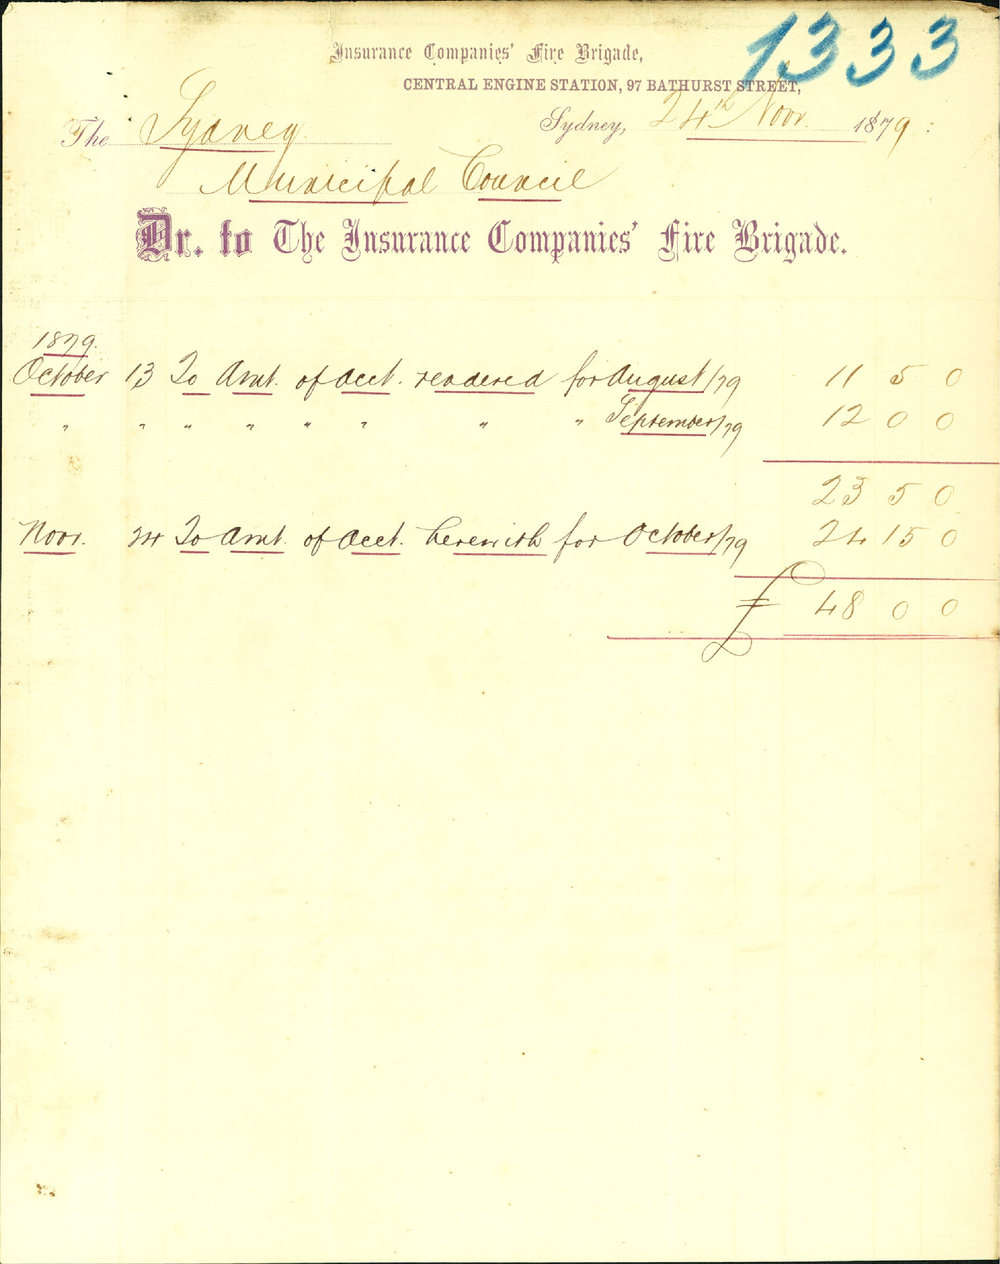 1333
Insurance Companies' Fire Brigade,
CENTRAL ENGINE STATION, 97 BATHURST STREET,
Sydney, 24th Novr. 1879 :
The Sydney
Municipal Council
Dr. to The Insurance Companies' Fire Brigade.
1879.
October 13 To Amt. of Acct. rendered for August/79 11 5 0
" " " " " " " " September/79 12 0 0
23 5 0
Novr. 24 To Amt. of Acct. herewith for October/79 24 15 0
£ 48 0 0